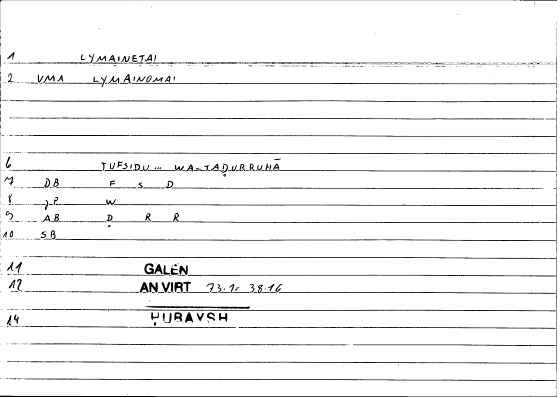 1 LYMAINETAI
2 VMA LYMAINOMAI
6 TUFSIDU ... WA-TAḌURRUHĀ
7 DB F S D
8 JP W
9 AB Ḍ R R
10 SB
11 GALEN
12 AN VIRT 73.12 38.16
14 ḤUBAYSH